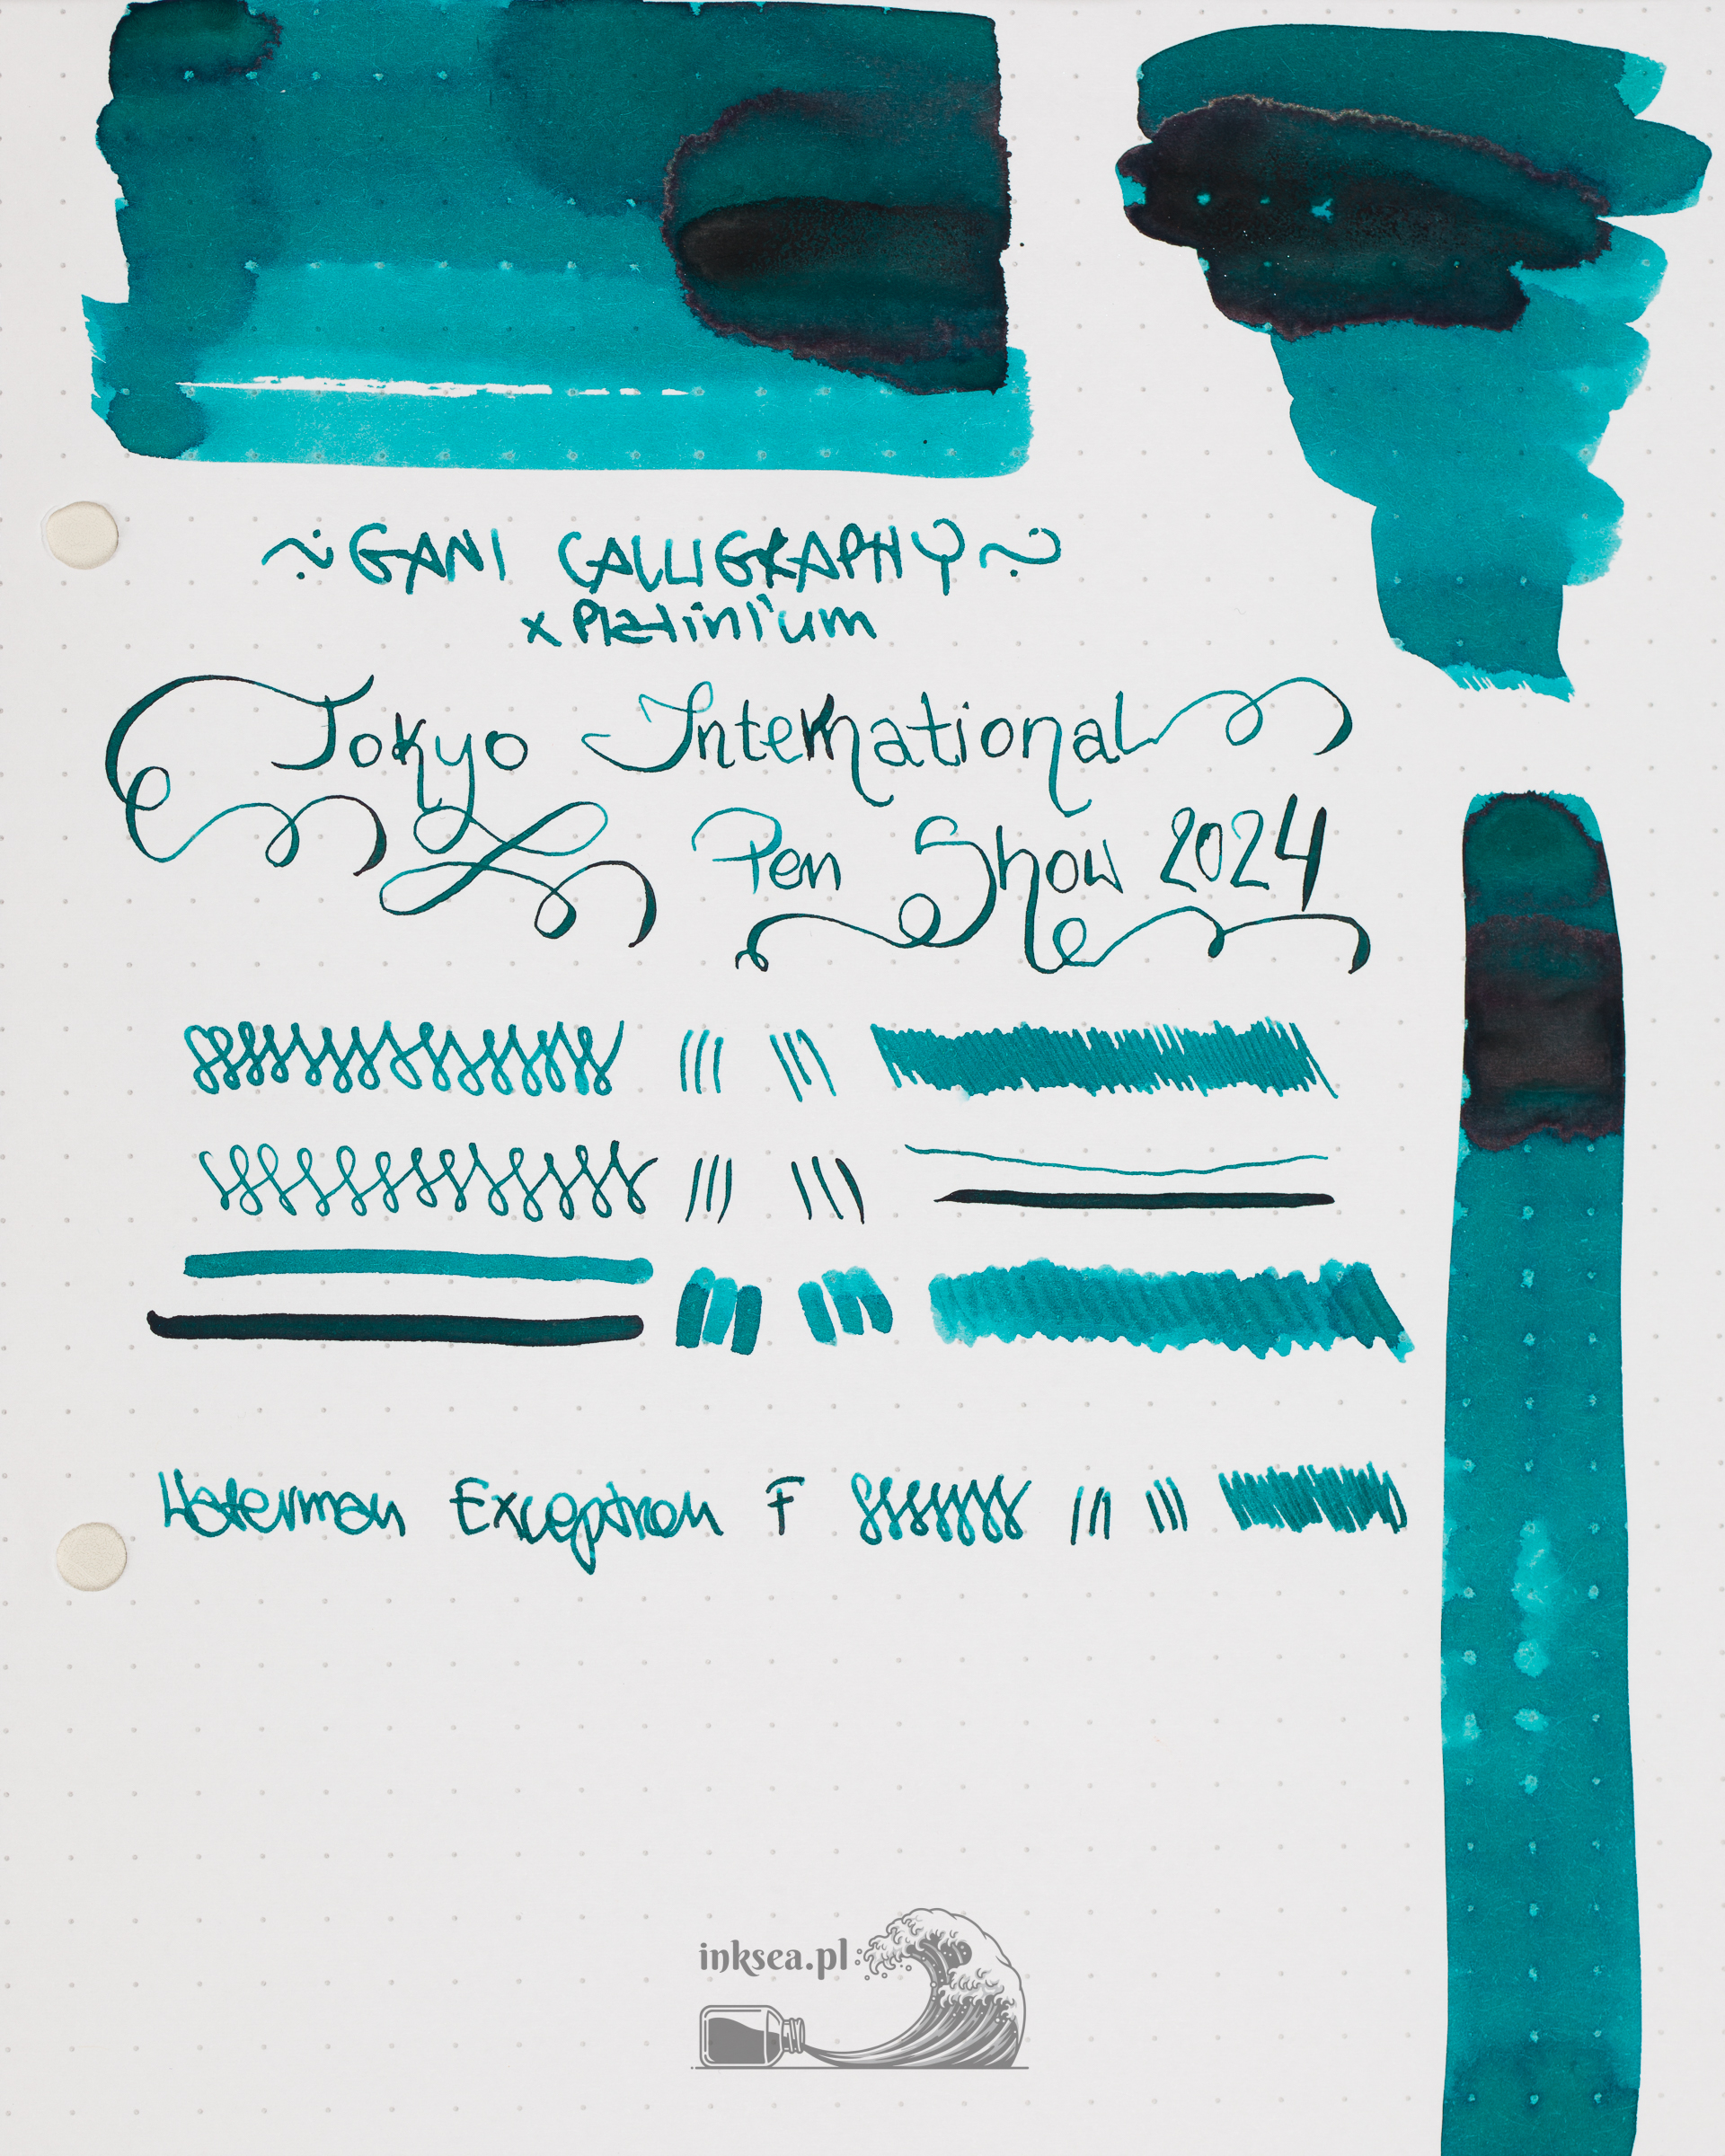 ~ GANI CALLIGRAPHY ~
x Platinium
Tokyo International
Pen Show 2024
Waterman Exception F
inksea.pl